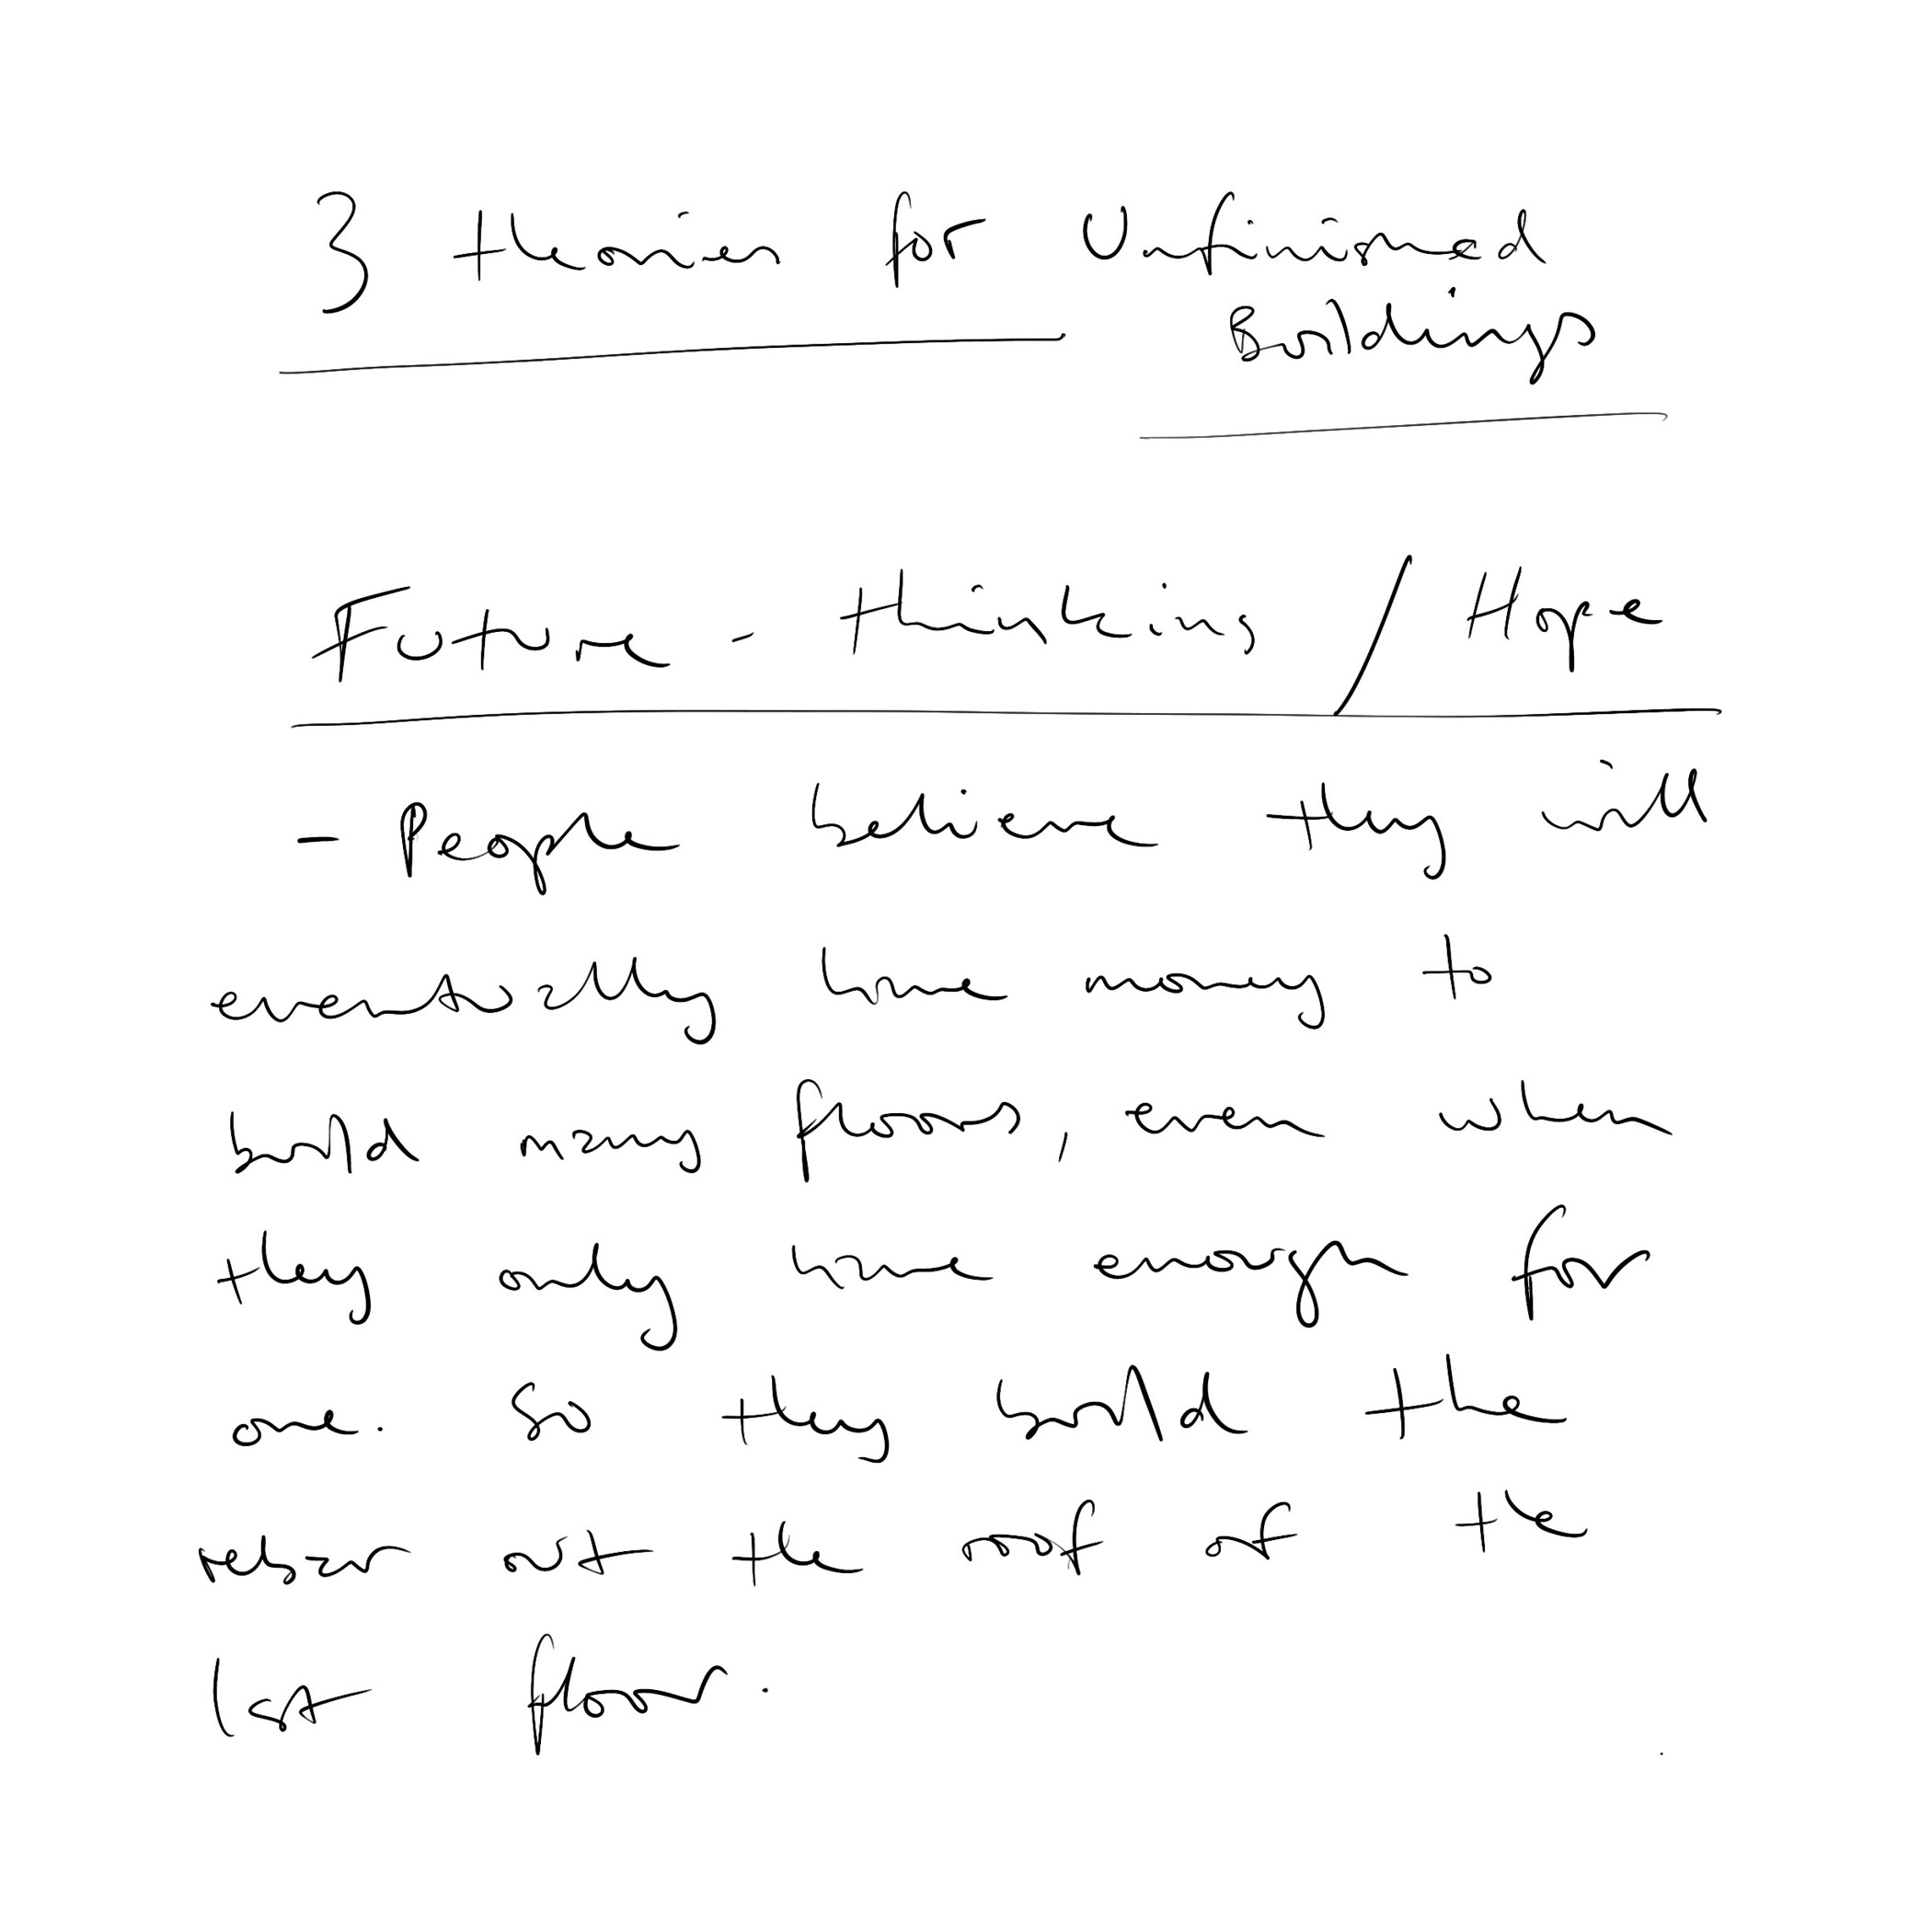 3 theories for Unfinished
Buildings
Future - thinking / Hope
- People believe they will
eventually have money to
build many floors, even when
they only have enough for
one. So they build the
rebar out the roof of the
1st floor.